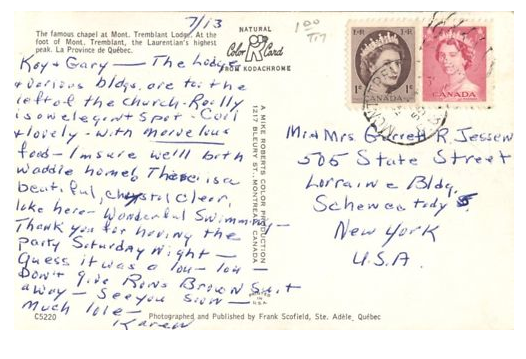 7/13
The famous chapel at Mont. Tremblant Lodge. At the
foot of Mont. Tremblant, the Laurentian's highest
peak. La Province de Québec.
NATURAL
Color Card
FROM KODACHROME
1.00
Kay & Gary — The Lodge
& various bldgs. are to the
left of the church - Really
is an elegant spot - Cool
& lovely - with marvelous
food - Imsure we'll both
waddle home! There is a
beautiful, chrystal clear,
lake here - Wonderful swimming -
Thank you for having the
party Saturday night —
Guess it was a lou-lou
Don't give Rons Brown Suit
away — See you soon —
Much love -
Karen
A MIKE ROBERTS COLOR PRODUCTION
1217 BLEURY ST., MONTREAL, CANADA
1¢ 1¢
CANADA
CANADA
Mr + Mrs Garrett R. Jessen
505 State Street
Lorraine Bldg.
Schenectady 5.
New York
U.S.A.
C5220
Photographed and Published by Frank Scofield, Ste. Adèle, Québec